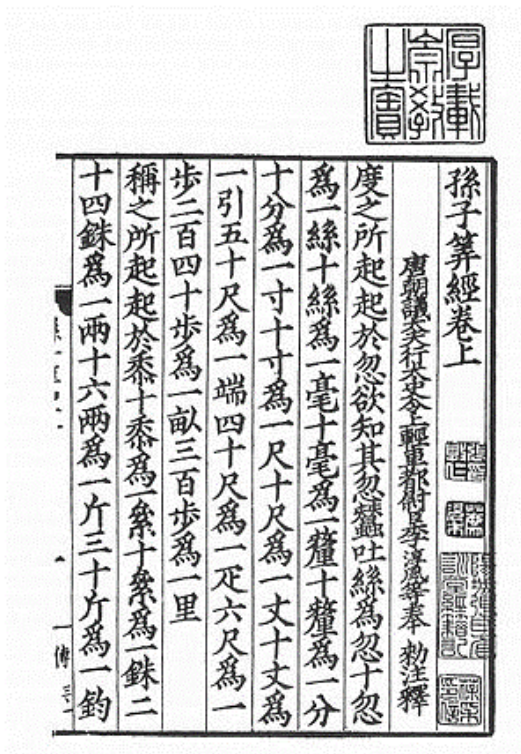 孫子筭經卷上
唐朝議大夫行太史令上輕車都尉臣李淳風等奉 勑注釋
度之所起起於忽欲知其忽蠶吐絲為忽十忽
為一絲十絲為一毫十毫為一釐十釐為一分
十分為一寸十寸為一尺十尺為一丈十丈為
一引五十尺為一端四十尺為一疋六尺為一
步二百四十步為一畝三百步為一里
稱之所起起於黍十黍為一絫十絫為一銖二
十四銖為一兩十六兩為一斤三十斤為一鈞
厚載崇教之寶